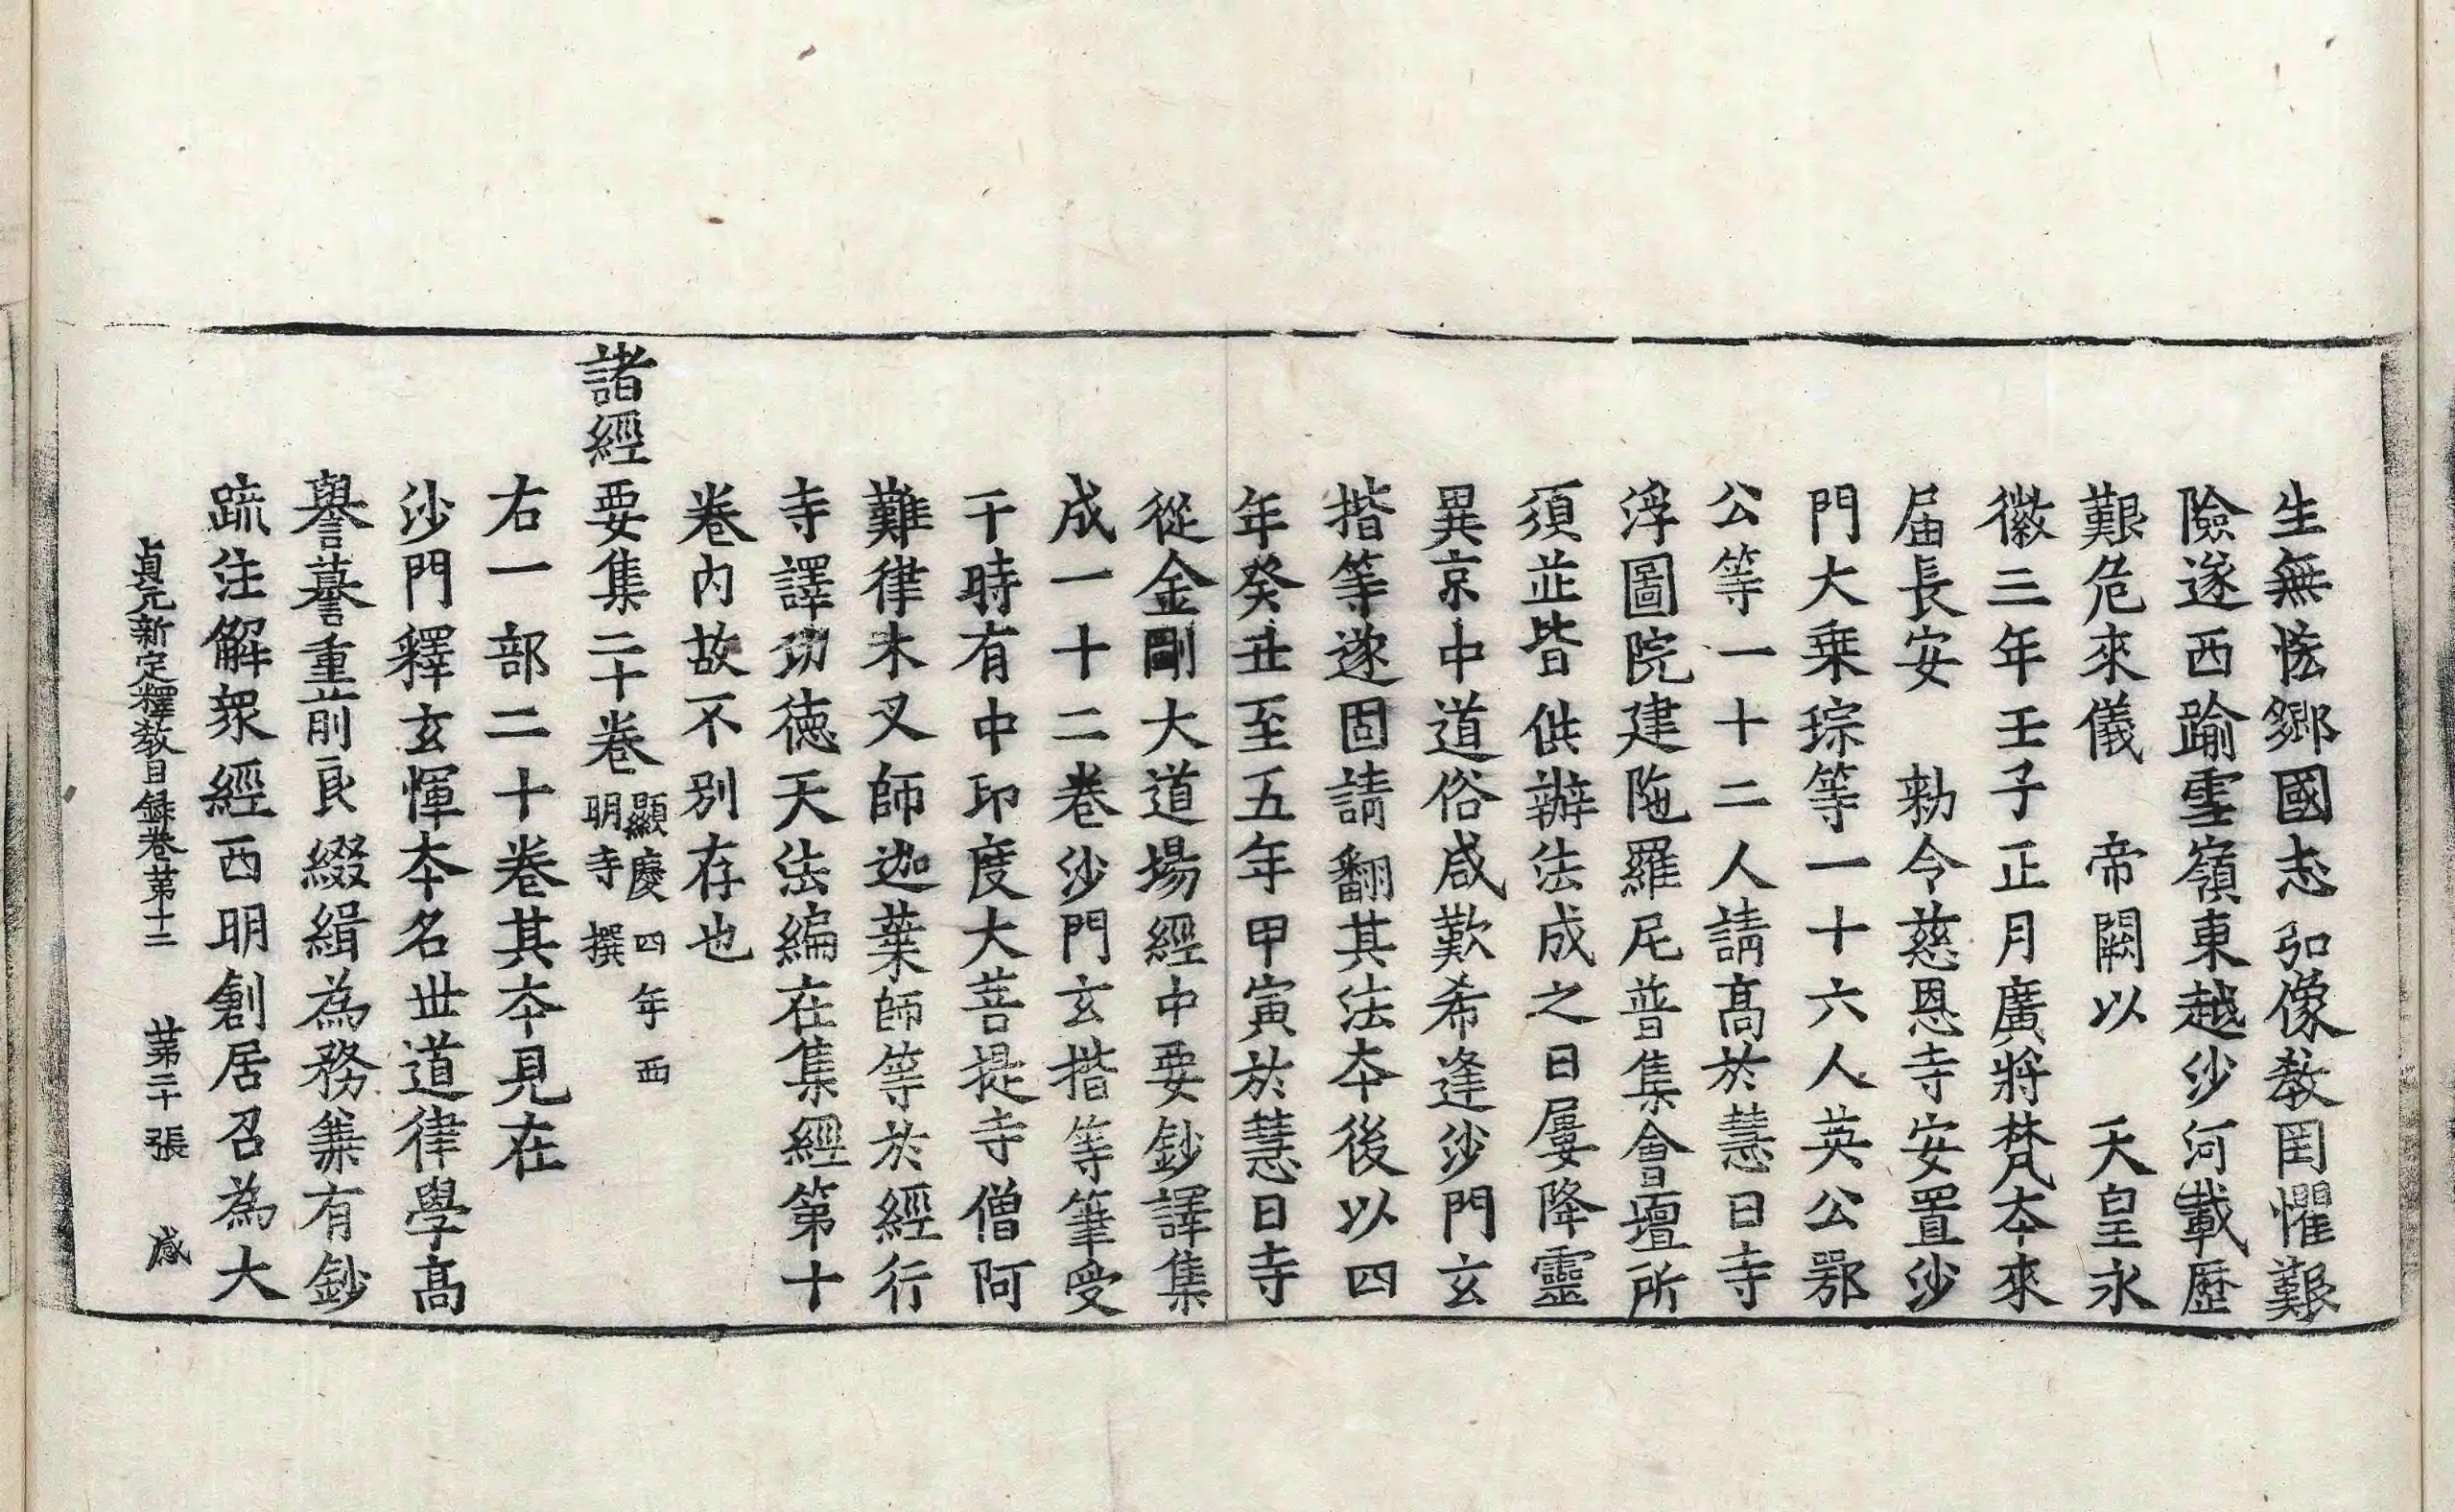 生無恡鄉國志弘像教罔懼艱
險遂西踰雪嶺東越沙河載歷
艱危來儀 帝闕以 天皇永
徽三年壬子正月廣將梵本來
届長安 勑令慈恩寺安置沙
門大乗琮等一十六人英公鄂
公等一十二人請髙於慧日寺
浮圖院建陁羅尼普集會壇所
須並皆供辦法成之日屢降靈
異京中道俗咸歎希逢沙門玄
揩等遂固請翻其法本後以四
年癸丑至五年甲寅於慧日寺
從金剛大道場經中要鈔譯集
成一十二卷沙門玄揩等筆受
于時有中印度大菩提寺僧阿
難律木叉師迦葉師等於經行
寺譯功徳天法編在集經第十
卷内故不別存也
諸經要集二十卷 顯慶四年西
明寺撰
右一部二十卷其本見在
沙門釋玄惲本名世道律學髙
譽慕重前良綴緝為務兼有鈔
疏注解衆經西明創居召為大
貞元新定釋教目録卷苐十二 苐二十張 感